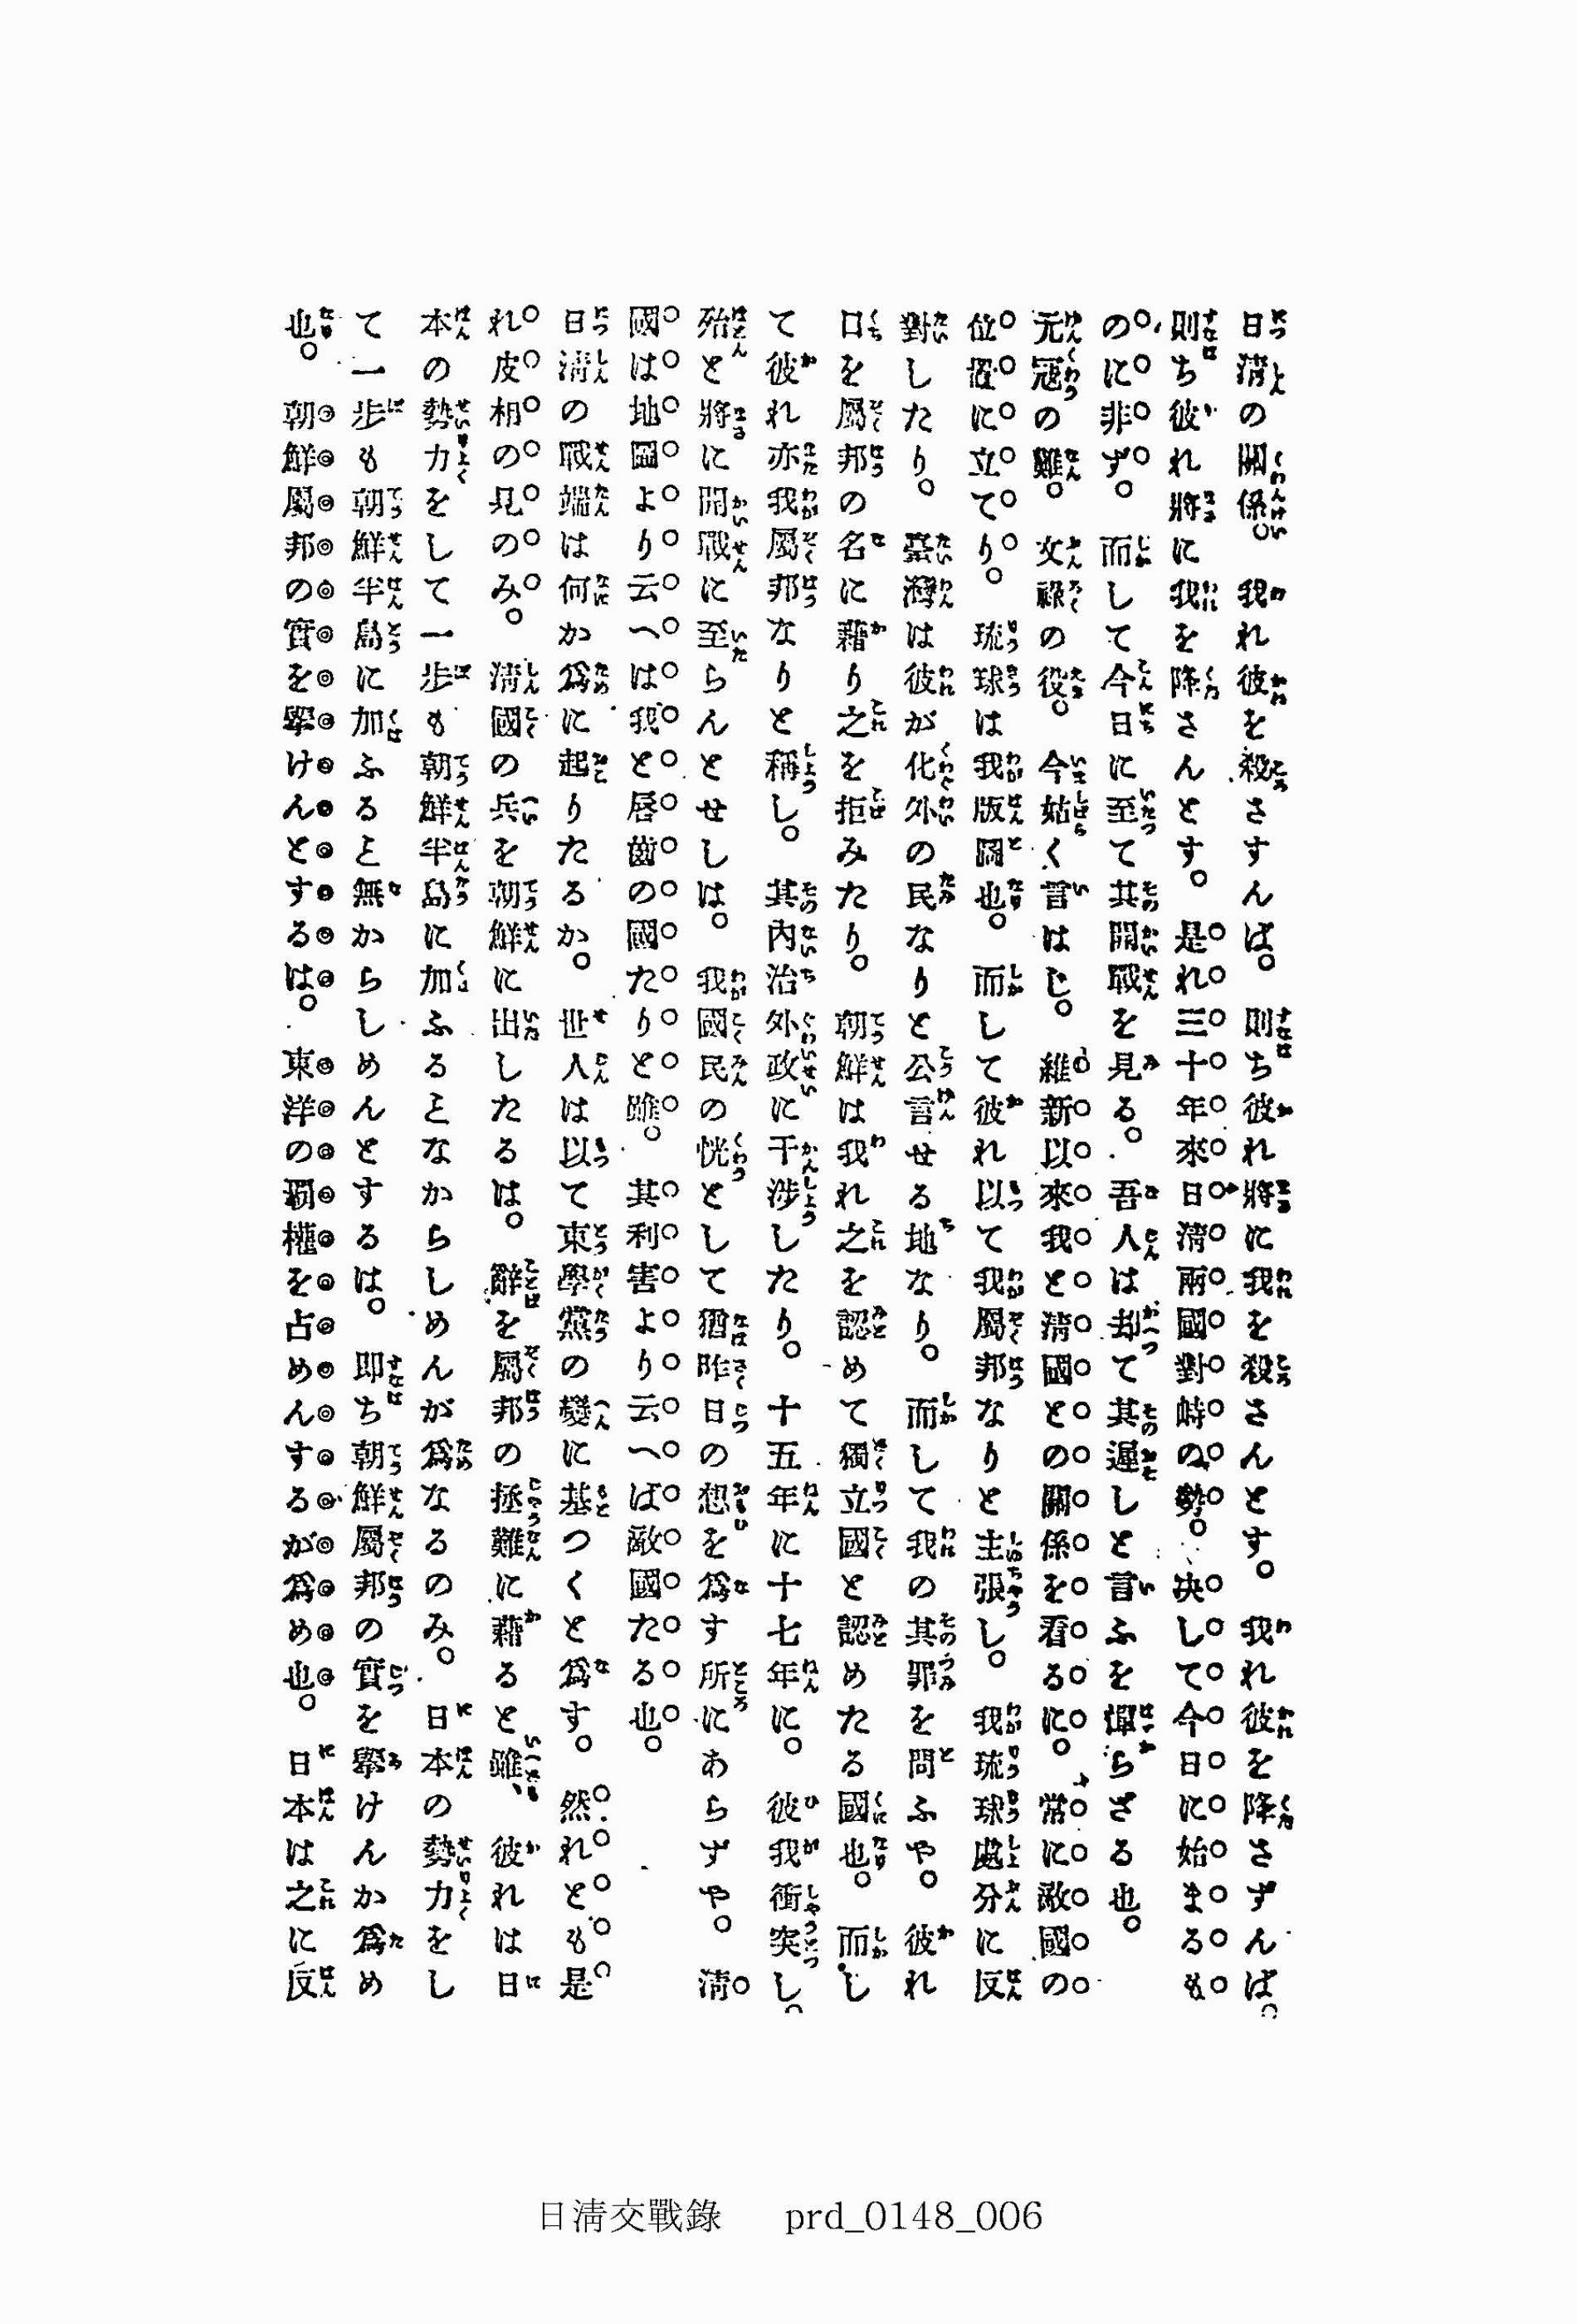 日清の關係。我れ彼を殺さすんば。則ち彼れ將に我を殺さんとす。我れ彼を降さずんば。
則ち彼れ將に我を降さんとす。是れ三十年來日清兩國對峙の勢。决して今日に始まるも
のに非ず。而して今日に至て其開戰を見る。吾人は却て其遲しと言ふを憚らざる也。
元冦の難。文祿の役。今姑く言はじ。維新以來我と清國との關係を看るに。常に敵國の
位置に立てり。琉球は我版圖也。而して彼れ以て我屬邦なりと主張し。我琉球處分に反
對したり。臺灣は彼が化外の民なりと公言せる地なり。而して我の其罪を問ふや。彼れ
口を屬邦の名に藉り之を拒みたり。朝鮮は我れ之を認めて獨立國と認めたる國也。而し
て彼れ亦我屬邦なりと稱し。其内治外政に干渉したり。十五年に十七年に。彼我衝突し。
殆と將に開戰に至らんとせしは。我國民の恍として猶昨日の想を爲す所にあらずや。清
國は地圖より云へは我と唇齒の國たりと雖。其利害より云へば敵國たる也。
日清の戰端は何か爲に起りたるか。世人は以て東學黨の變に基つくと爲す。然れとも是
れ皮相の見のみ。清國の兵を朝鮮に出したるは。辭を屬邦の拯難に藉ると雖、彼れは日
本の勢力をして一歩も朝鮮半島に加ふるとなからしめんが爲なるのみ。日本の勢力をし
て一歩も朝鮮半島に加ふると無からしめんとするは。即ち朝鮮屬邦の實を擧けんか爲め
也。朝鮮屬邦の實を擧けんとするは。東洋の覇權を占めんするが爲め也。日本は之に反
日清交戰錄 prd_0148_006